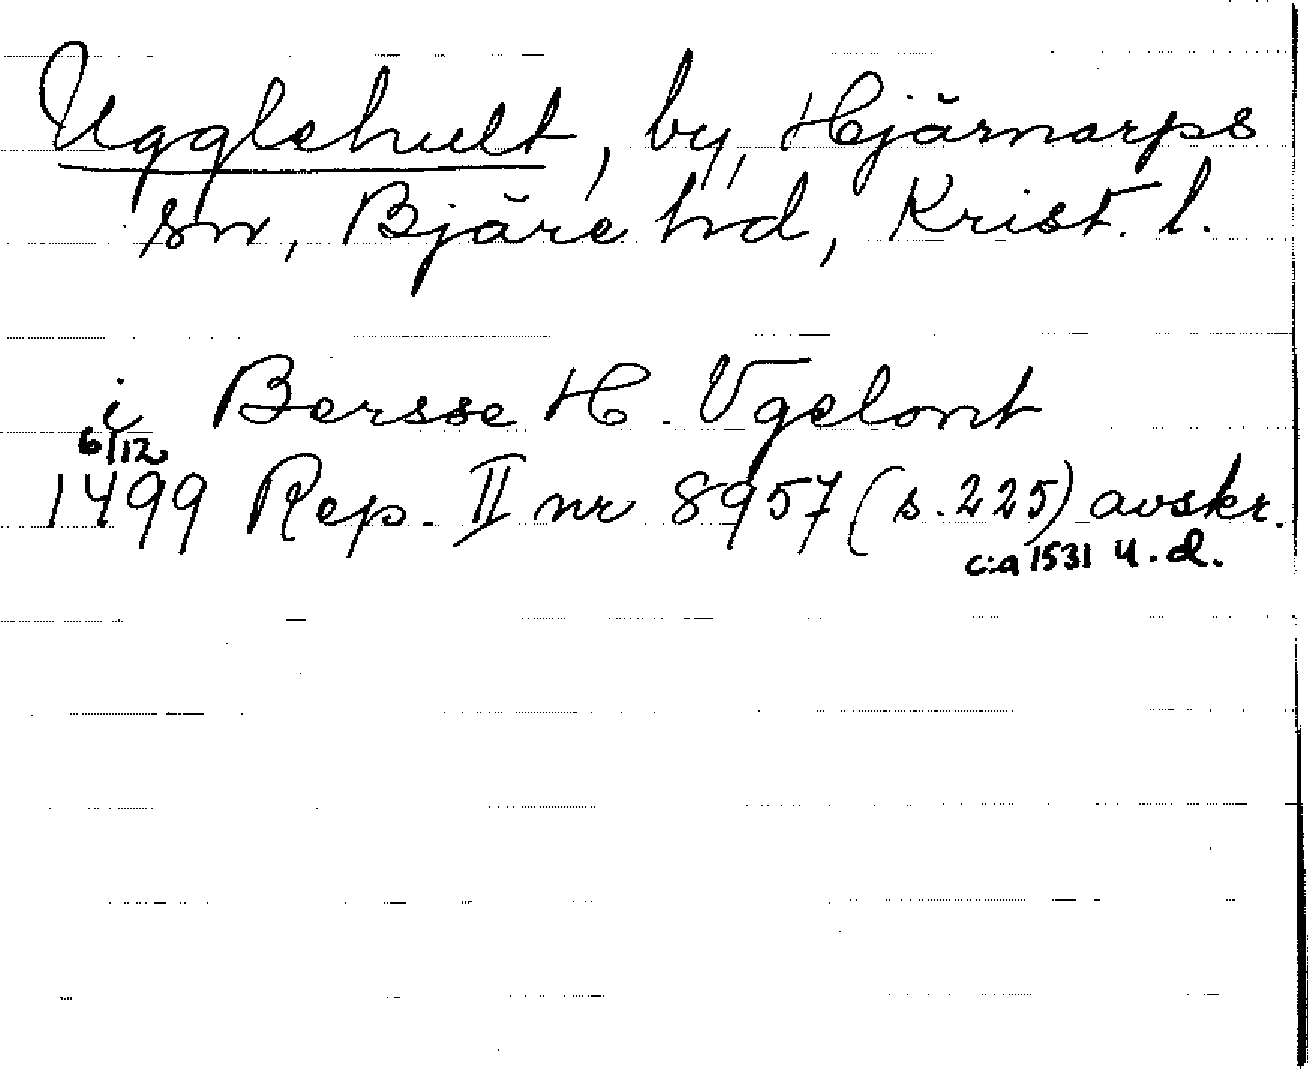 Ugglehult, by, Hjärnarps
sn, Bjäre hd, Krist. l.
i Bersse H. Vgelont
6/12
1499 Rep. II nr 8957 (s. 225) avskr.
c:a 1531 u. d.